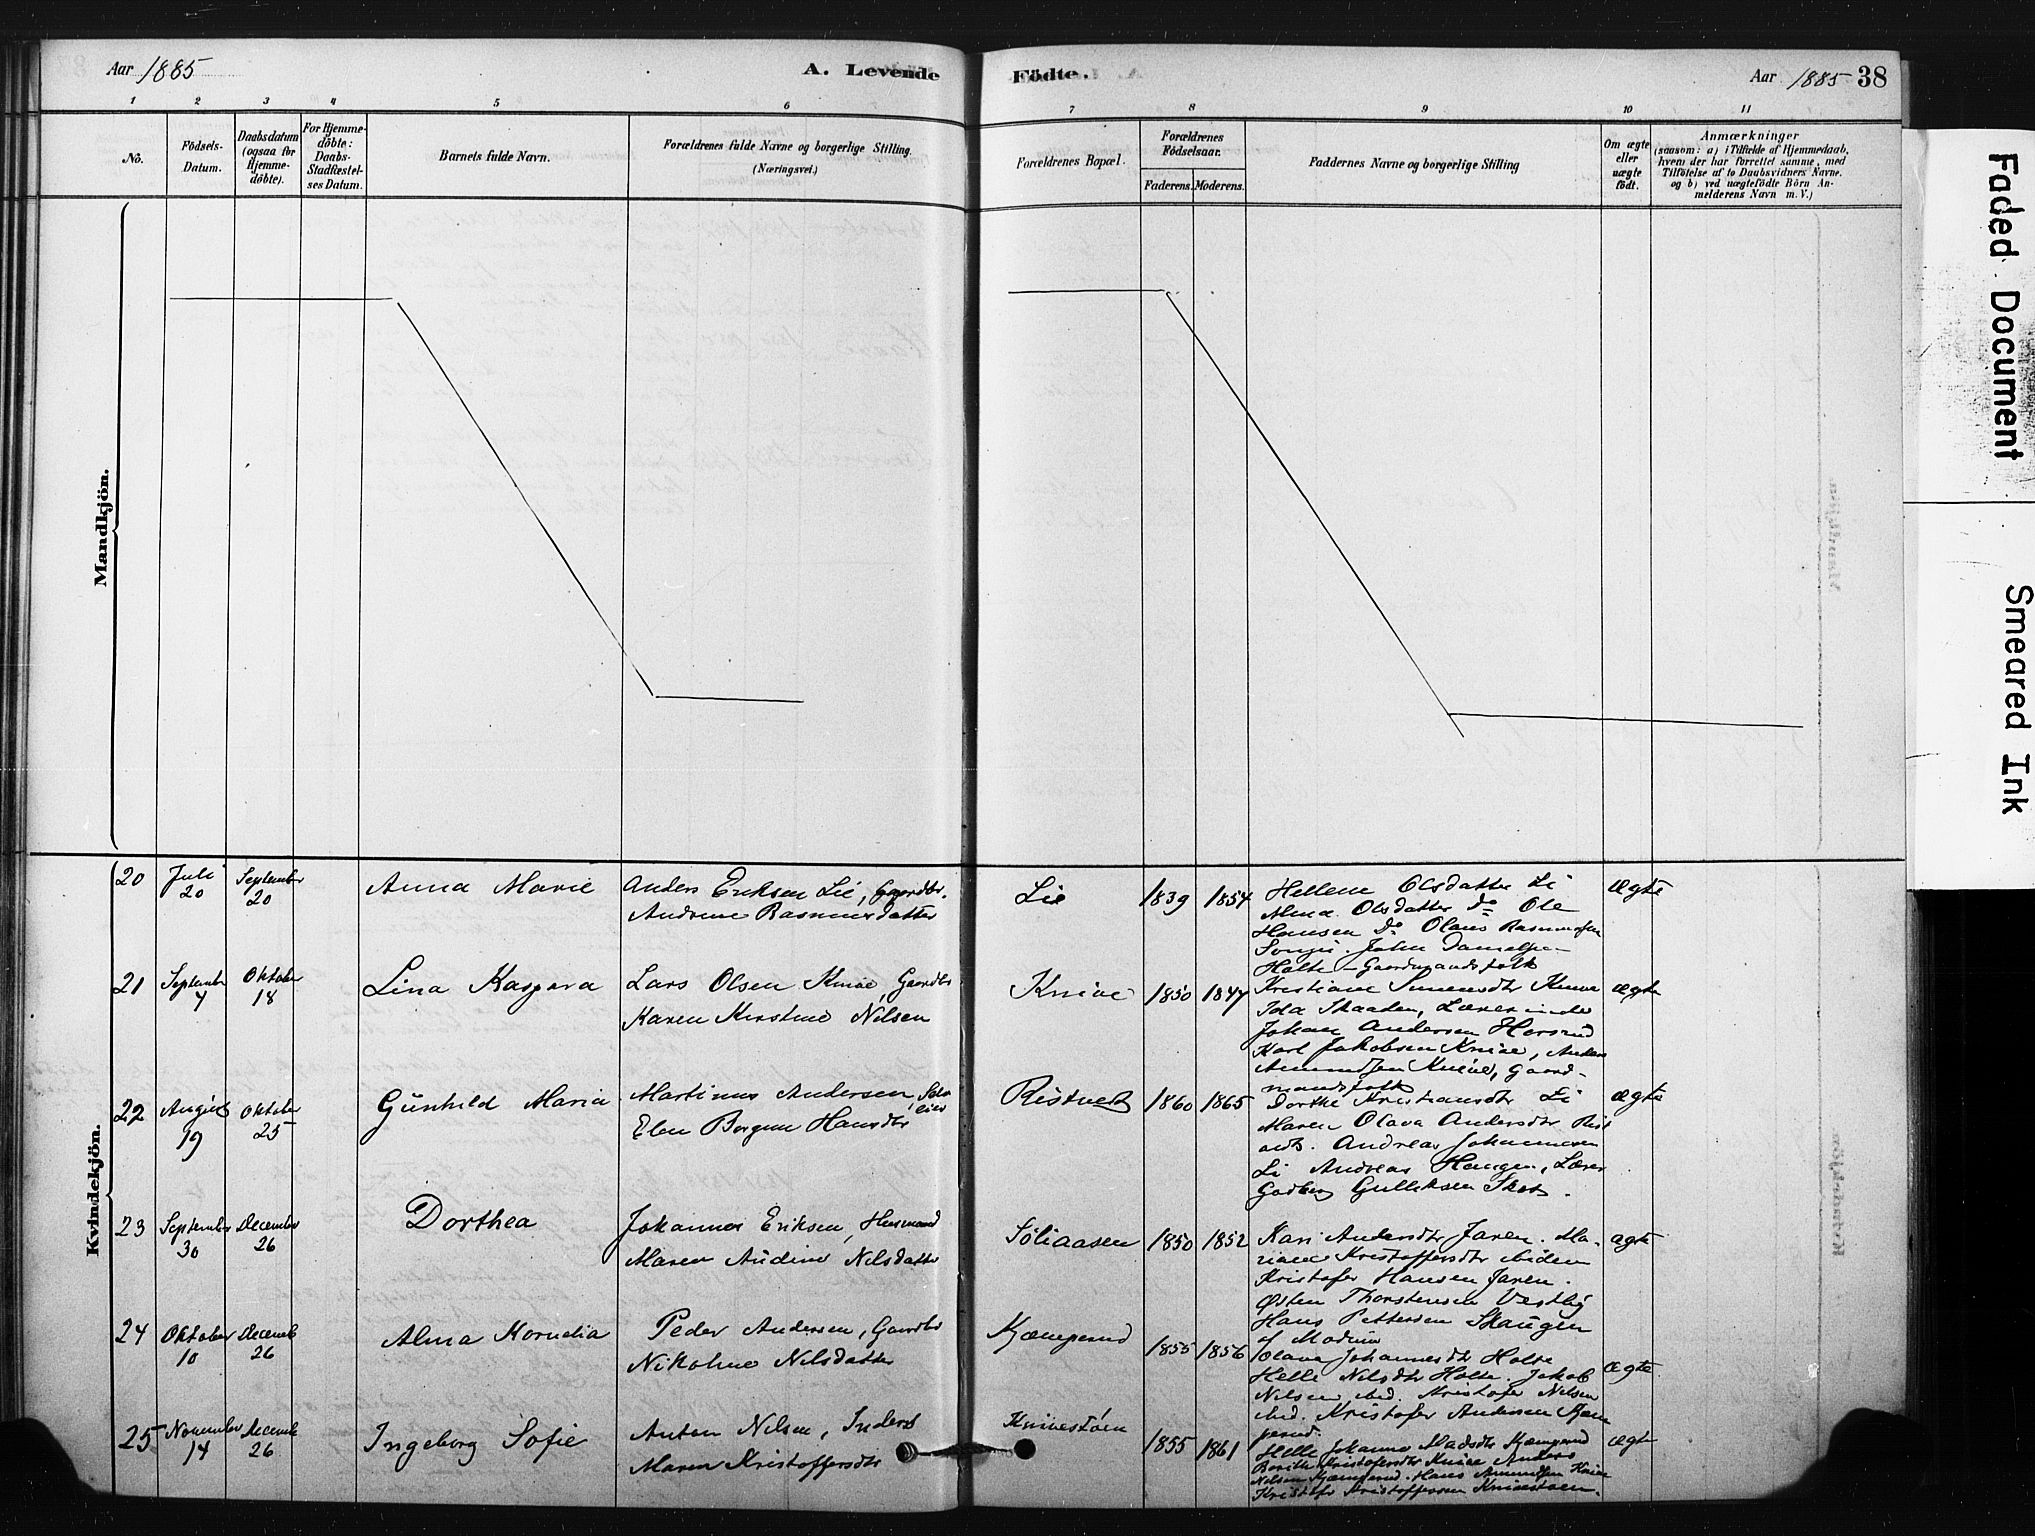 Aar 1885
A. Levende
Födte.
Aar 1885
38
1 2 3 4 5 6
7 8 9 10 11
No.
Födsels-
Datum.
Daabsdatum
(ogsaa for
Hjemme-
döbte).
For Hjemme-
döbte:
Daabs-
Stadfæstel-
ses Datum.
Barnets fulde Navn.
Forældrenes fulde Navne og borgerlige Stilling.
(Næringsvei.)
Forældrenes Bopæl.
Forældrenes
Födselsaar.
Faderens. Moderens.
Faddernes Navne og borgerlige Stilling
Om ægte
eller
uægte
födt.
Anmærkninger
(saasom: a) i Tilfælde af Hjemmedaab,
hvem der har forrettet samme, med
Tilföielse af to Daabsvidners Navne.
og b) ved uægtefödte Börn An-
melderens Navn m. V.)
Mandkjön.
Kvindekjön.
20
Juli
20
September
20
Anna Marie
Anders Eriksen Lie, Gaardbr.
Andrene Rasmusdatter
Lie
1839 1854
Hellene Olsdatter Li
Alma Olsdatter Do Ole
Hansen Do Olaus Rasmussen
John Danielsen
Holte - Gaardmandsfolk
Ægte
21
September
4
Oktober
18
Lina Kaspara
Lars Olsen Knive, Gaardbr
Karen Kirstine Nilsen
Knive
1850 1847
Kristiane Simensdtr Knive
Ida Skaaden, Lærerinde
Johan Andersen Horsrud
Karl Jakobsen Knive, Anders
Amundsen Knive, Gaard-
mandsfolk
Ægte
22
August
19
Oktober
25
Gunhild Maria
Martinus Andersen, Selv
eier
Elen Borgine Hansdtr
Ristvedt
1860 1865
Dorthe Kristiansdtr Li
Maren Olava Andersdtr Rist
vedt. Andreas Johannesen
Li Andreas Haugen, Lærer
Gulliksen
Ægte
23
September
30
December
26
Dorthea
Johannes Eriksen, Husmand
Maren Andine Nilsdatter
Söliaasen
1850 1852
Kari Andersdtr Jaren. Ma-
riane Kristoffersdtr ibiden
Kristofer Hansen Jaren.
Østen Thorstensen Vestby
Hans Pettersen Skaugen
af Modum
Ægte
24
Oktober
10
Decemb
26
Alma Kornelia
Peder Andersen, Gaardbr
Nikoline Nilsdatter
Kjæmperud
1855 1856
Olava Johannesdtr Holte
Helle Nilsdtr Holte. Jakob
Nilsen ibid. Kristofer Nilsen
ibid. Kristofer Andersen Kjæm
perud.
Ægte
25
November
14
Decemb
26
Ingeborg Sofie
Anton Nilsen, Inderst
Maren Kristoffersdtr
Knivestöen
1855 1861
Helle Johanne Madsdtr Kjæmperud
Berith Kristofersdtr Knive Anders
Nilsen Kjæmperud. Hans Amundsen Knive
Kristofer Kristoffersen Knivestöen.
Ægte
Faded Document
Smeared Ink